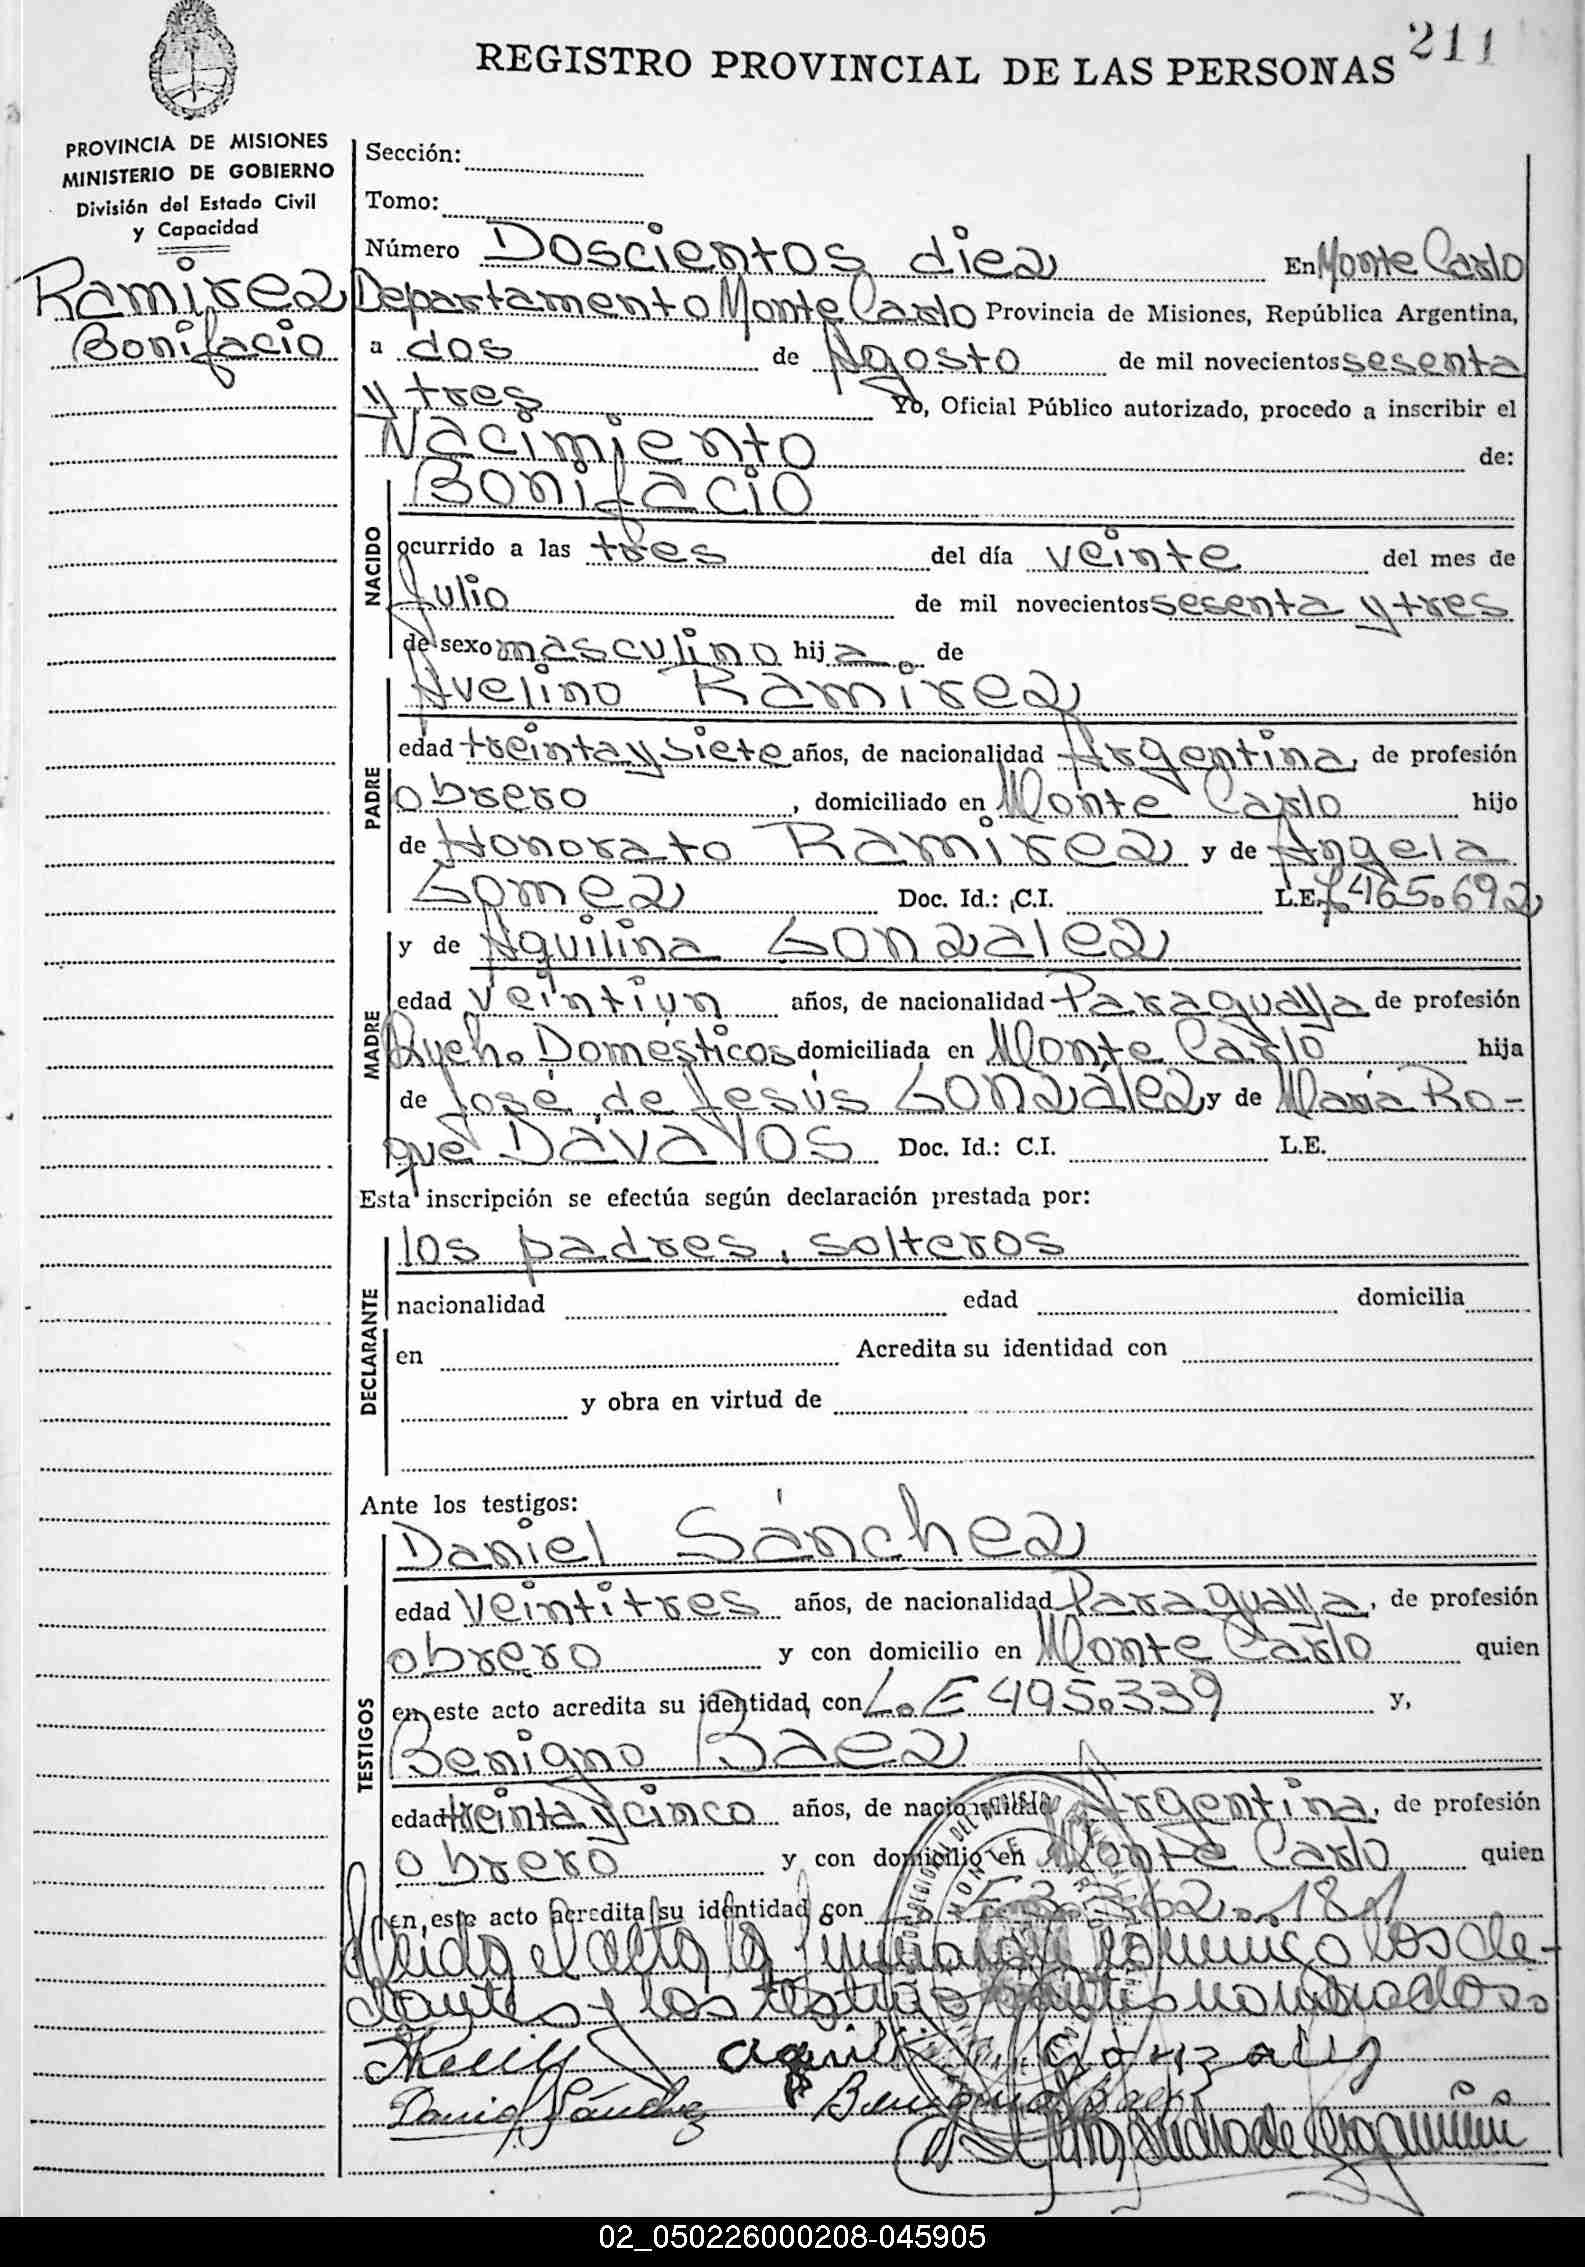 211
REGISTRO PROVINCIAL DE LAS PERSONAS
PROVINCIA DE MISIONES
MINISTERIO DE GOBIERNO
División del Estado Civil
y Capacidad
Ramirez
Bonifacio
Sección:
Tomo:
Número Doscientos diez En Monte Carlo
Departamento Monte Carlo Provincia de Misiones, República Argentina,
a dos de Agosto de mil novecientos sesenta
y tres Yo, Oficial Público autorizado, procedo a inscribir el
Nacimiento de:
NACIDO
Bonifacio
ocurrido a las tres del día veinte del mes de
Julio de mil novecientos sesenta y tres
de sexo masculino hija. de
PADRE
Avelino Ramirez
edad treinta y siete años, de nacionalidad Argentina, de profesión
obrero, domiciliado en Monte Carlo hijo
de Honorato Ramirez y de Angela
Gomez Doc. Id.: C.I. L.E. 7.465.692
MADRE
y de Aquilina Gonzalez
edad veintiun años, de nacionalidad Paraguaya de profesión
Queh. Domésticos domiciliada en Monte Carlo hija
de José de Jesús González y de María Ro-
que Dávalos Doc. Id.: C.I. L.E.
Esta inscripción se efectúa según declaración prestada por:
DECLARANTE
los padres, solteros
nacionalidad edad domicilia
en Acredita su identidad con
y obra en virtud de
Ante los testigos:
TESTIGOS
Daniel Sánchez
edad veintitres años, de nacionalidad Paraguaya, de profesión
obrero y con domicilio en Monte Carlo quien
en este acto acredita su identidad con L.E 495.339 y,
Benigno Baez
edad treinta y cinco años, de nacionalidad Argentina, de profesión
obrero y con domicilio en Monte Carlo quien
en este acto acredita su identidad con
Leida el acta la firman conmigo los de-
clarantes y los testigos antes nombrados.
aquilina Gonzalez
Daniel Sánchez Benigno Baez
02_050226000208-045905